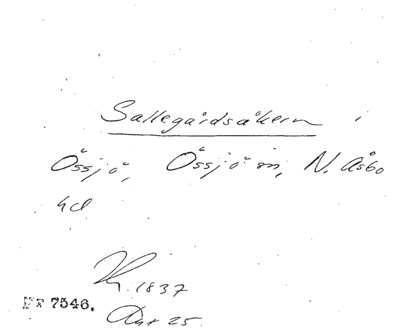 Sallegårdsåkern i
Össjö, Össjö sn, N. Åsbo
hd
1837
7546.
25.